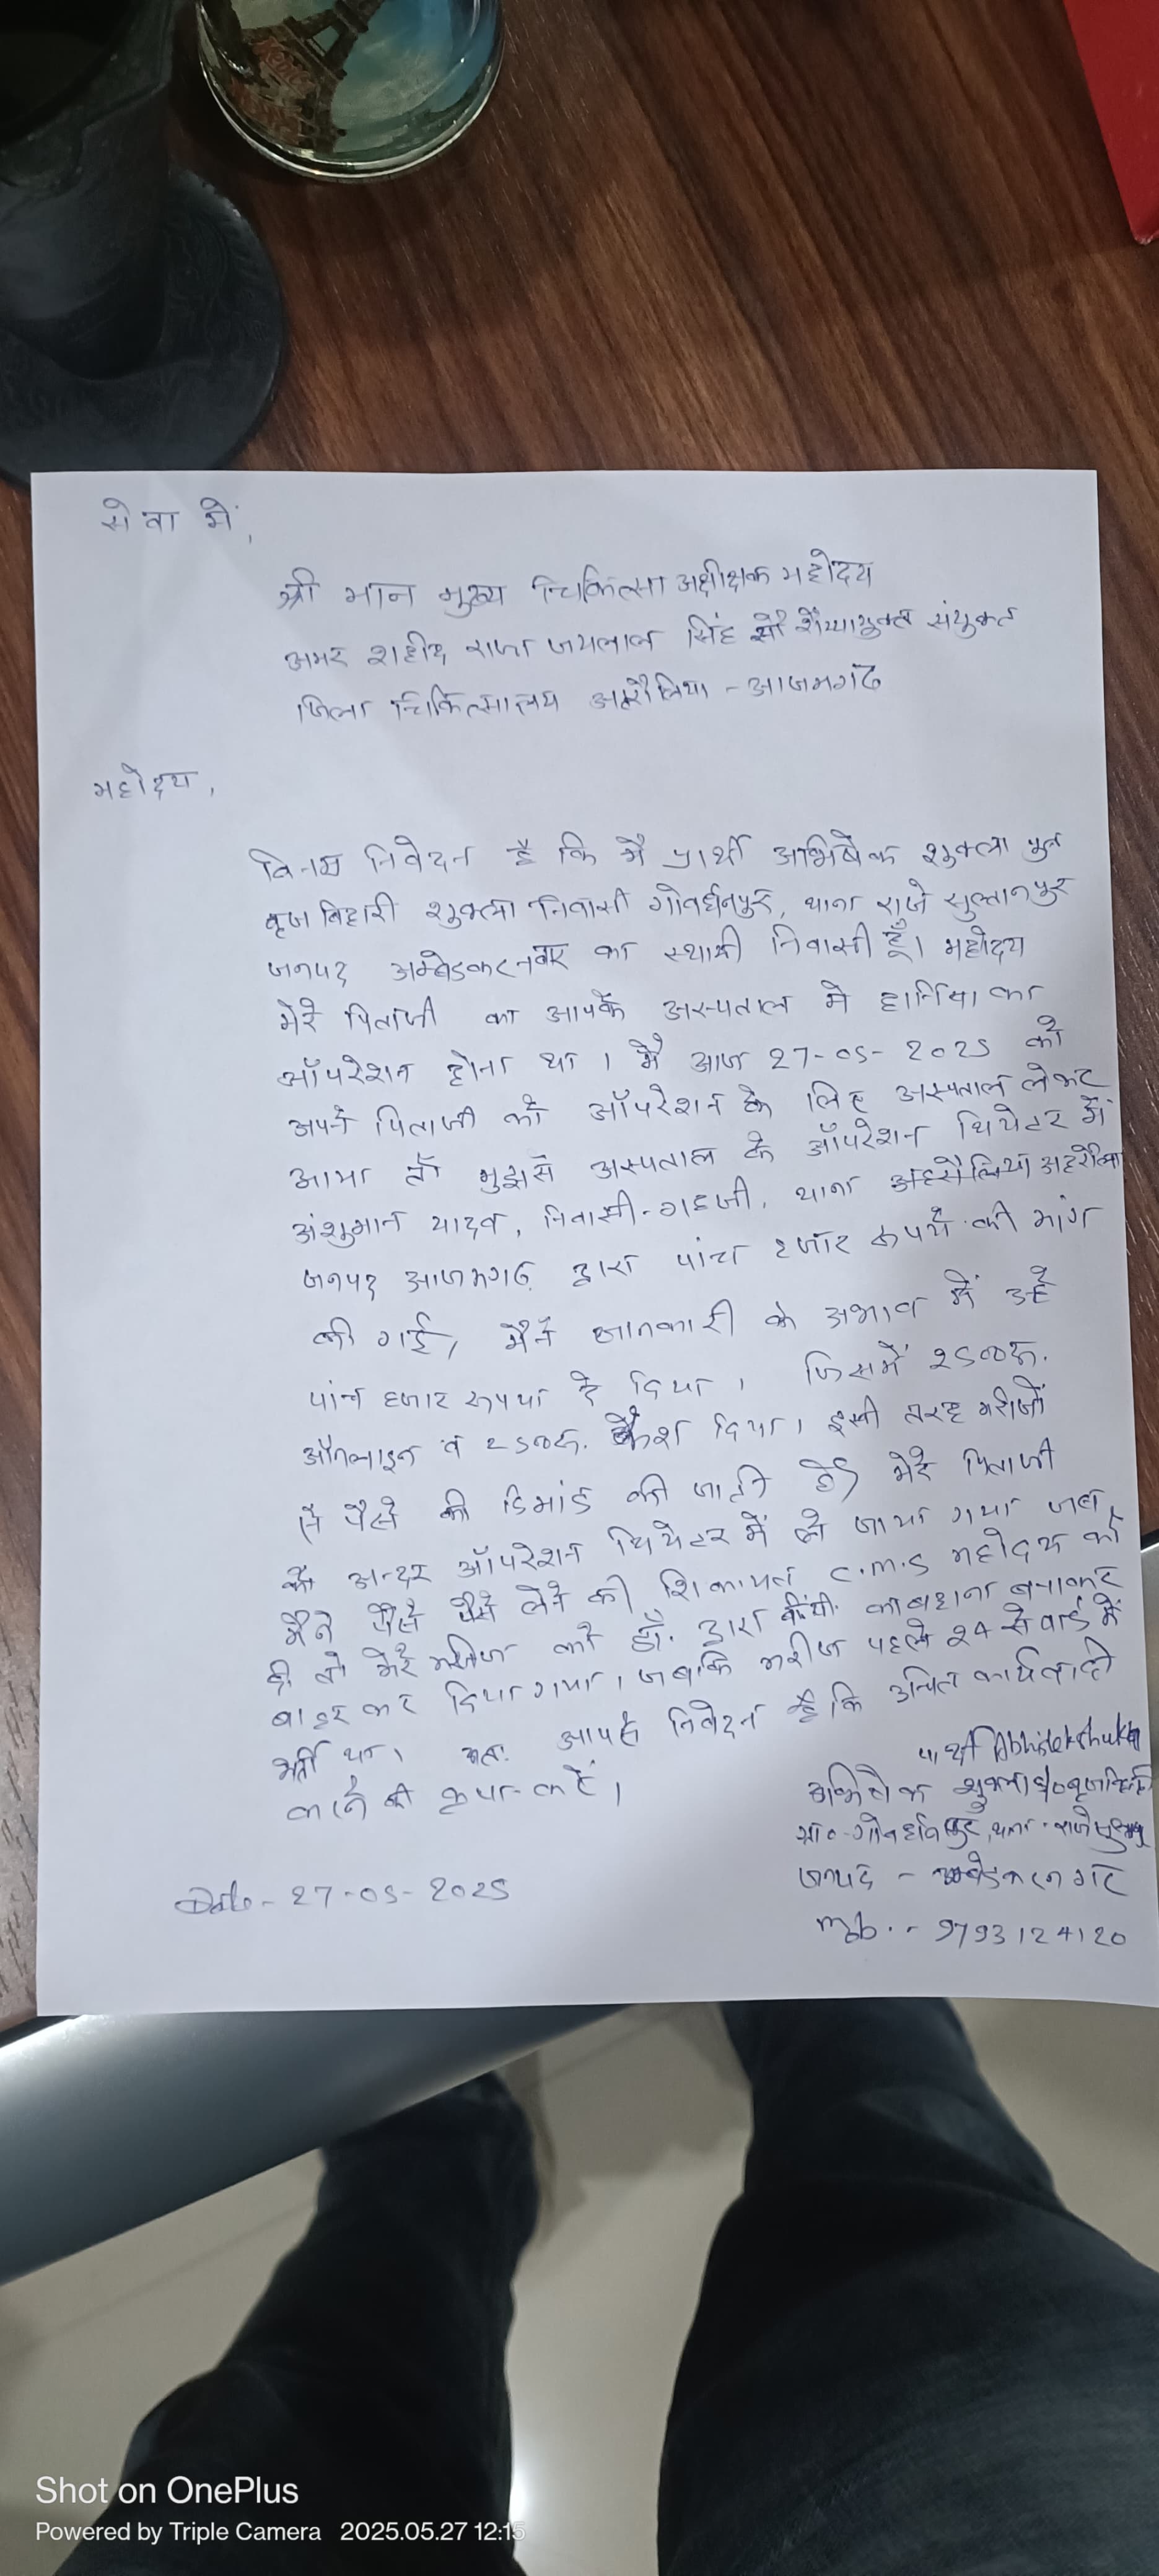 सेवा में,
श्री मान मुख्य चिकित्सा अधीक्षक महोदय
अमर शहीद राजा जयलाल सिंह सौ शैय्यायुक्त संयुक्त
जिला चिकित्सालय अतरौलिया - आजमगढ़
महोदय,
विनम्र निवेदन है कि मै प्रार्थी अभिषेक शुक्ला पुत्र
बृज बिहारी शुक्ला निवासी गोवर्धनपुर, थाना राजे सुल्तानपुर
जनपद अम्बेडकरनगर का स्थायी निवासी हूँ। महोदय
मेरे पिताजी का आपके अस्पताल मे हार्निया का
ऑपरेशन होना था। मै आज 27-05-2025 को
अपने पिताजी को ऑपरेशन के लिए अस्पताल लेकर
आया तो मुझसे अस्पताल के ऑपरेशन थियेटर में
अंशुमान यादव, निवासी-गहजी, थाना
जनपद आजमगढ़ द्वारा पांच हजार रूपये की मांग
की गई, मैने जानकारी के अभाव में उन्हे
पांच हजार रूपया दे दिया। जिसमें 2500रु.
ऑनलाइन व 2500रु. कैश दिया। इसी तरह मरीजों
से पैसे की डिमांड की जाती है। मेरे पिताजी
को अन्दर ऑपरेशन थियेटर में ले जाया गया जब
मैने पैसे लेने की शिकायत C.M.S महोदय को
दी तो मेरे मरीज को डॉ. द्वारा का बहाना बनाकर
बाहर कर दिया गया। जबकि मरीज पहले 24 से वार्ड में
भर्ती था। अतः आपसे निवेदन है कि उचित कार्यवाही
करने की कृपा करें।
प्रार्थी Abhishek Shukla
अभिषेक शुक्ला S/o बृजबिहारी
ग्रा०-गोवर्धनपुर, थाना-
जनपद - अम्बेडकरनगर
Date - 27-05-2025
Mob. - 9793124120
Shot on OnePlus
Powered by Triple Camera 2025.05.27 12:15